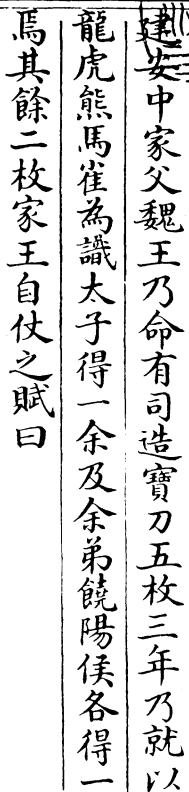 建安中家父魏王乃命有司造寶刀五枚三年乃就以
龍虎熊馬雀為識太子得一余及余弟饒陽侯各得一
焉其餘二枚家王自仗之賦曰